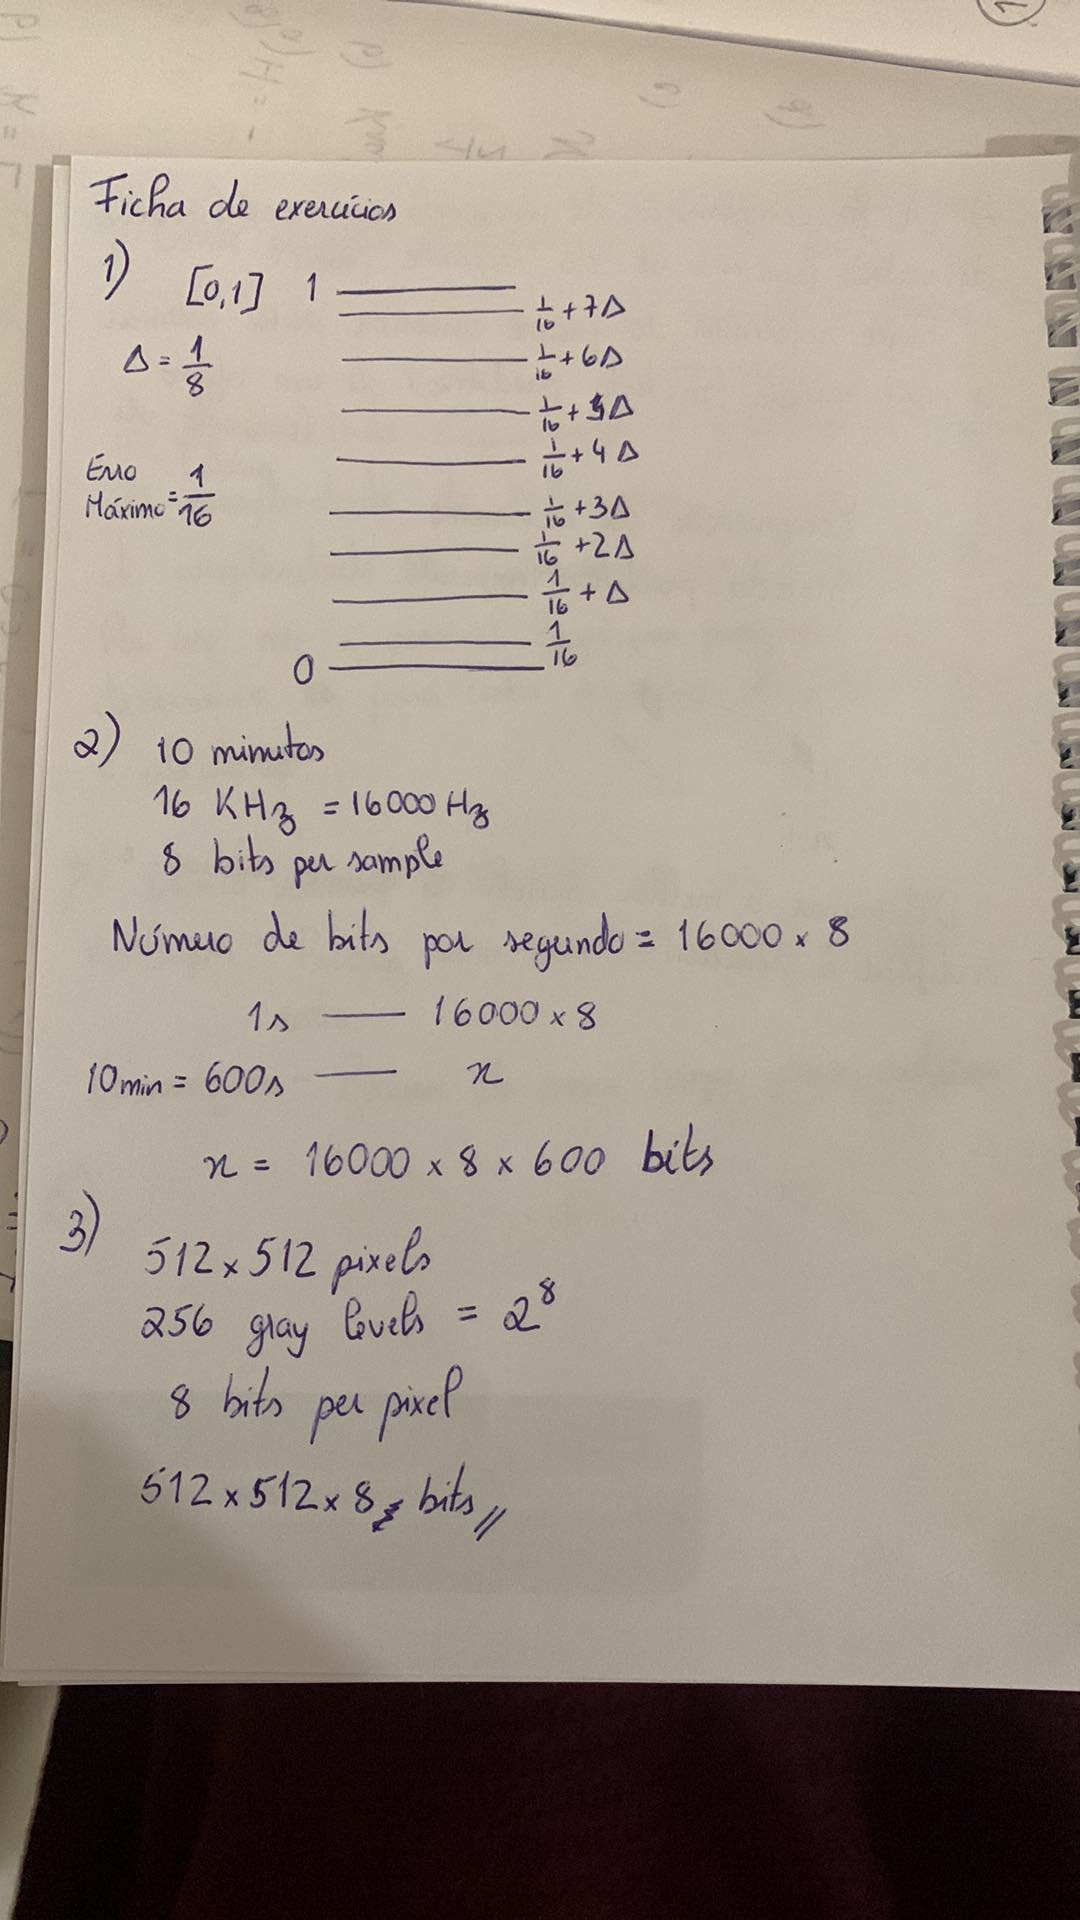 Ficha de exercícios
1) [0,1] 1
1/16 + 7Δ
Δ = 1/8
1/16 + 6Δ
1/16 + 5Δ
1/16 + 4Δ
Erro
Máximo = 1/16
1/16 + 3Δ
1/16 + 2Δ
1/16 + Δ
1/16
0
2) 10 minutos
16 KHz = 16000 Hz
8 bits per sample
Número de bits por segundo = 16000 × 8
1s — 16000 × 8
10min = 600s — x
x = 16000 × 8 × 600 bits
3)
512 × 512 pixels
256 gray levels = 2^8
8 bits per pixel
512 × 512 × 8 bits //